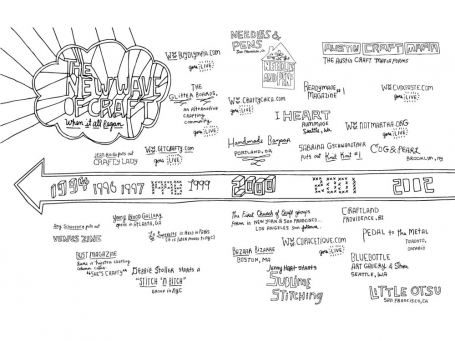 THE
NEW WAVE
OF CRAFT
When it all Began
JEAN RAILLA puts out
CRAFTY LADY
WWW.BUYOLYMPIA.COM
goes LIVE!
THE
GLITTER BOARDS,
an alternative
crafting
community,
goes LIVE!
WWW.GETCRAFTY.COM
goes LIVE!
NEEDLES &
PENS
San Francisco, CA
NEEDLES AND PENS
WWW.CRAFTYCHICA.COM
goes LIVE!
Handmade Bazaar
PORTLAND, OR
AUSTIN CRAFT MAFIA
THE AUSTIN CRAFT MAFIA FORMS
READYMADE
MAGAZINE #1
I HEART
RUMMAGE
SEATTLE, WA
WWW.CUTXPASTE.COM
goes LIVE!
WWW.NOTMARTHA.ORG
goes LIVE!
SABRINA GSCHWANDTNER
puts out Knit Knit #1
COG & PEARL
BROOKLYN, NY
1994 1996 1997 1998 1999 2000 2001 2002
VENUS ZINE
BUST MAGAZINE
"SHE'S CRAFTY"
Young Blood Gallery
opens in ATLANTA, GA
DEBBIE STOLLER STARTS A
"STITCH 'N BITCH"
GROUP IN NYC
The First Church of Craft groups
form in NEW YORK & SAN FRANCISCO.
LOS ANGELES soon follows
BAZAAR BIZARRE
BOSTON, MA
WWW.COPACETIQUE.COM
goes LIVE!
Jenny Hart starts
SUBLIME
STITCHING
CRAFTLAND
PROVIDENCE, RI
PEDAL to the METAL
TORONTO,
ONTARIO
BLUEBOTTLE
ART GALLERY & Store
SEATTLE, WA
LITTLE OTSU
SAN FRANCISCO, CA